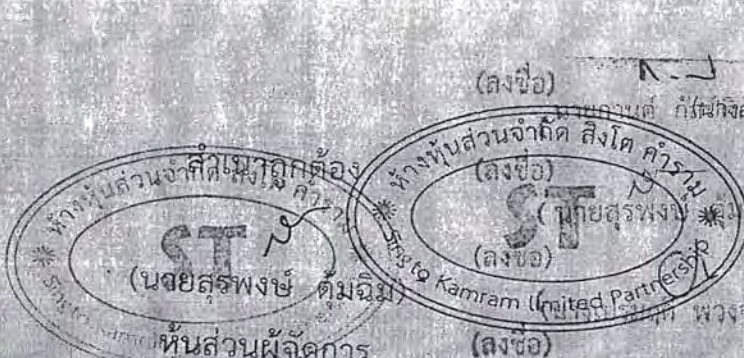 (ลงชื่อ)
ห้างหุ้นส่วนจำกัด สิงโต คำราม
ST
Singto Kamram Limited Partnership
(ลงชื่อ)
(นายสุรพงษ์
(ลงชื่อ)
พวง
(ลงชื่อ)
สำเนาถูกต้อง
ห้างหุ้นส่วนจำกัด สิงโต คำราม
ST
Singto
(นายสุรพงษ์ ตุ้มฉิม)
หุ้นส่วนผู้จัดการ